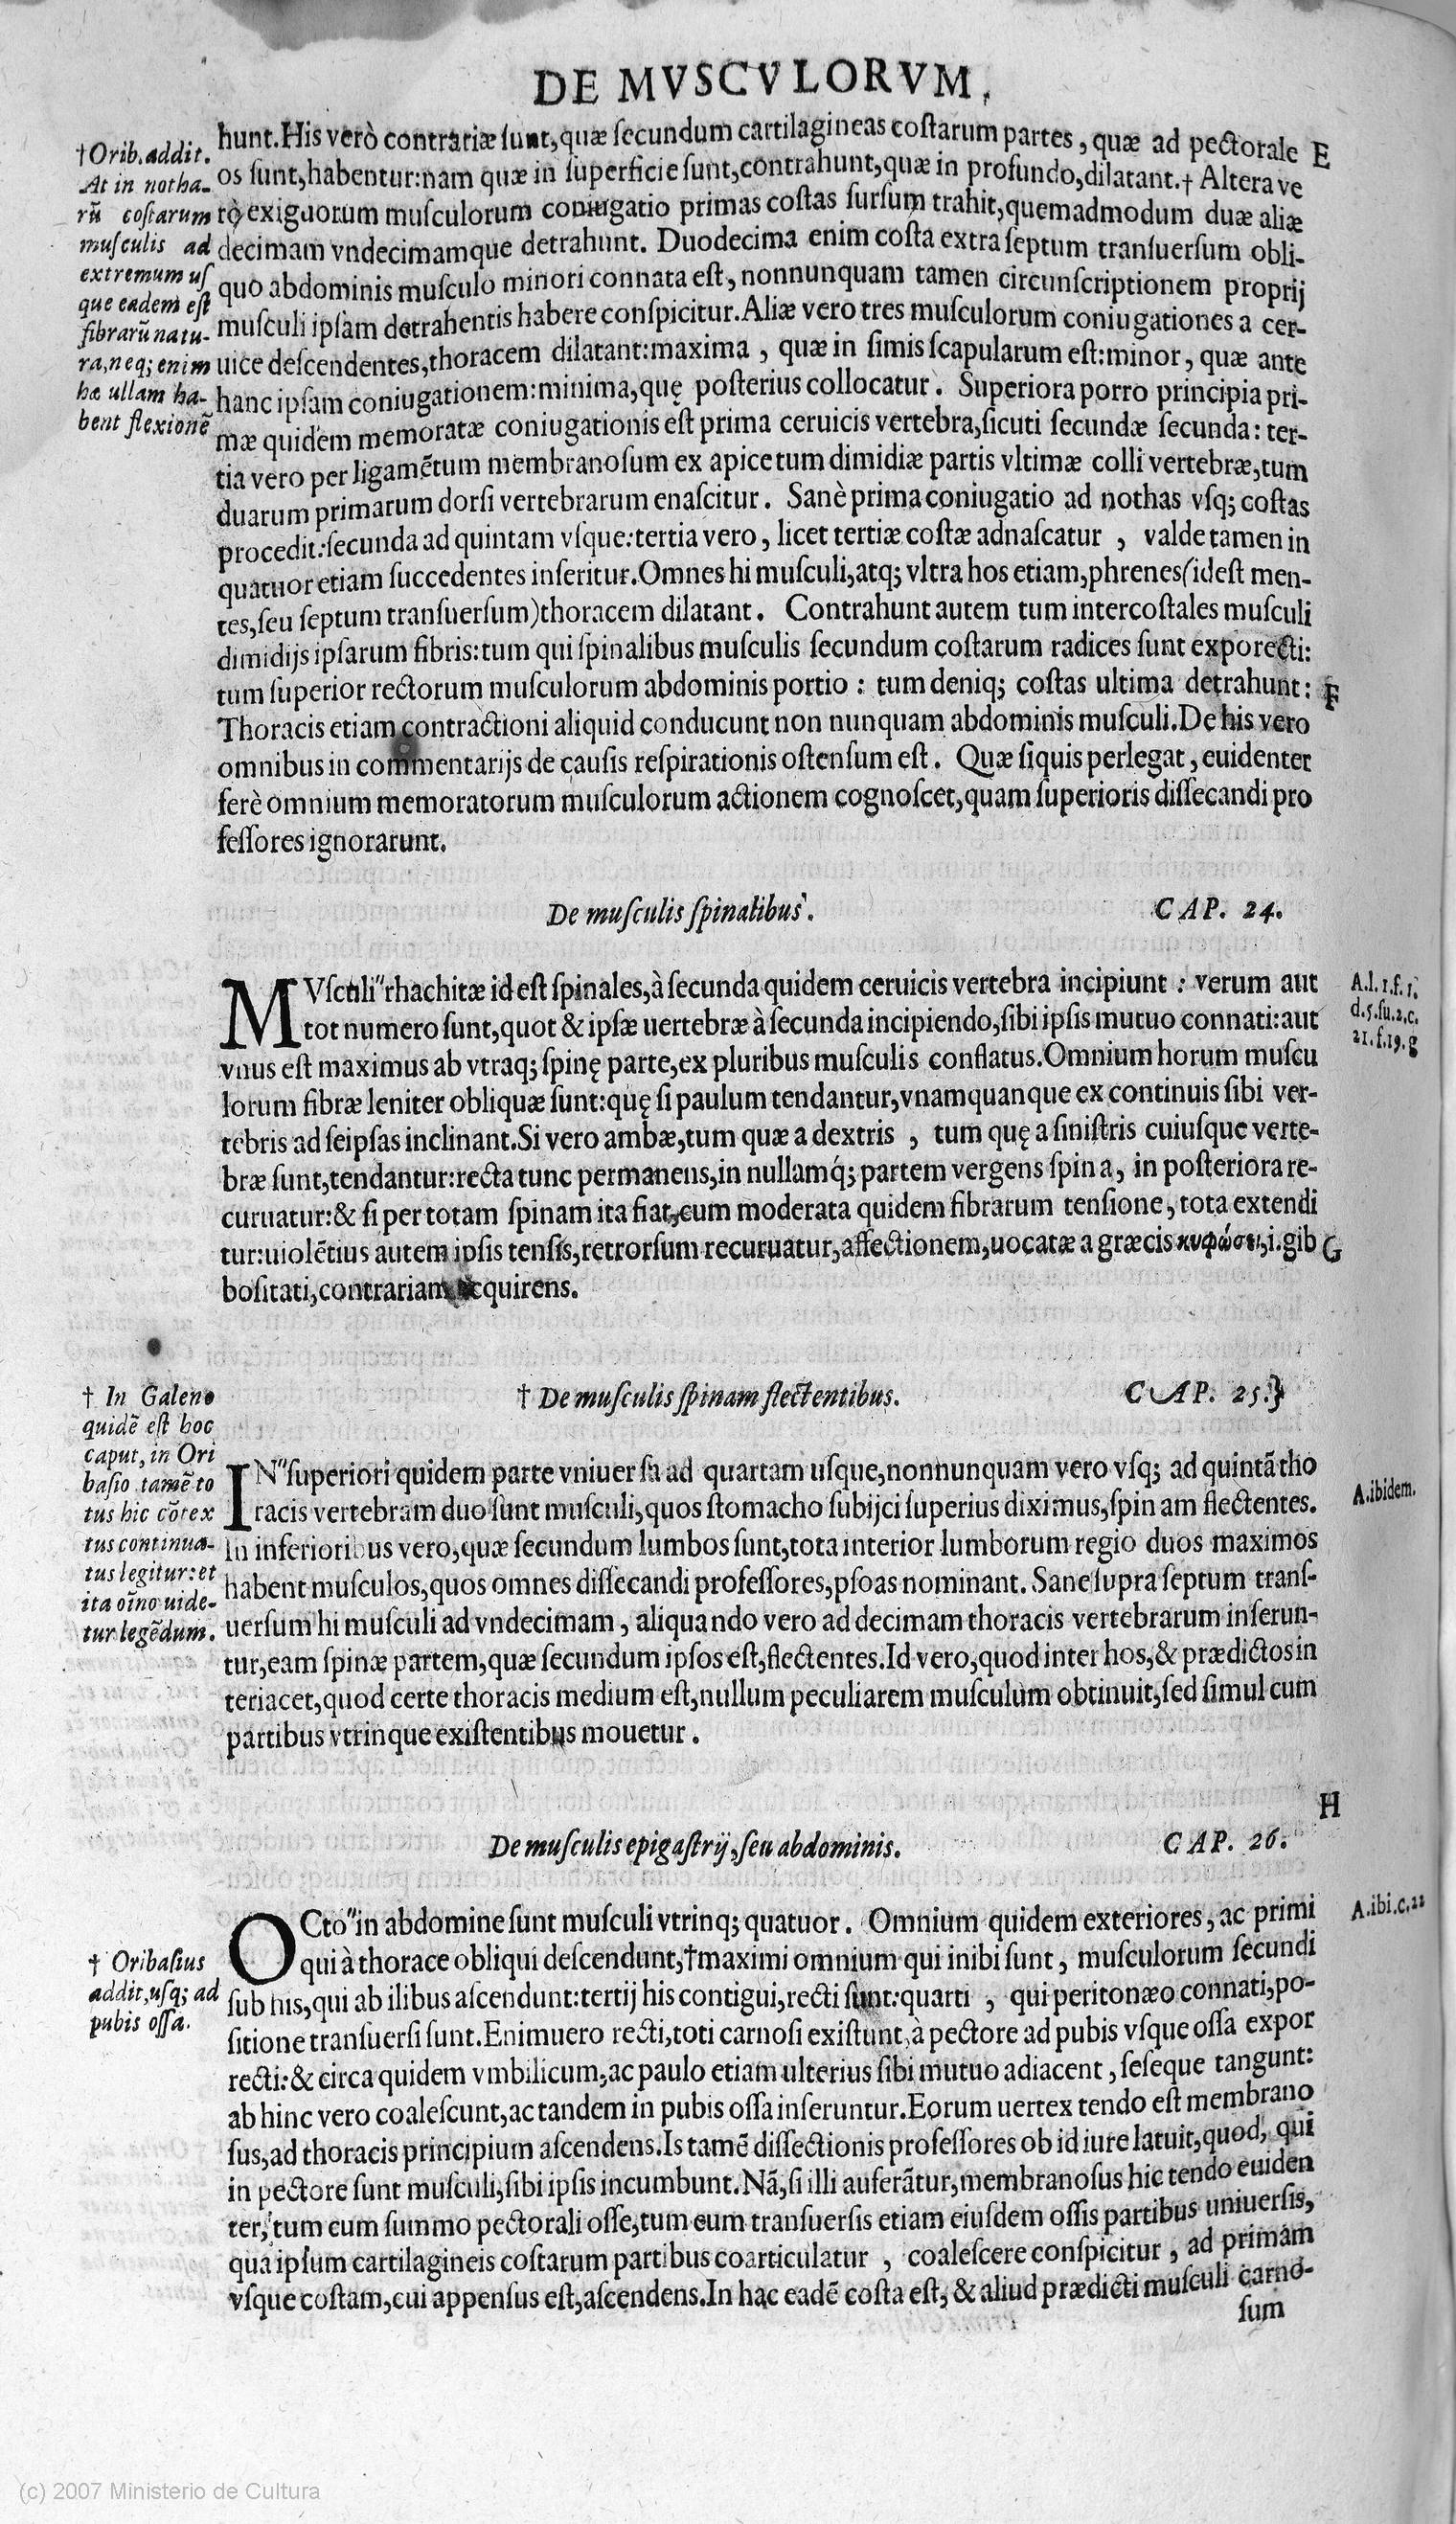 DE MVSCVLORVM.
hunt.His verò contrariæ ſunt,quæ ſecundum cartilagineas coſtarum partes, quæ ad pectorale E
os ſunt,habentur:nam quæ in ſuperficie ſunt,contrahunt,quæ in profundo,dilatant.† Altera ve
rò exiguorum muſculorum coniugatio primas coſtas ſurſum trahit,quemadmodum duæ aliæ
decimam vndecimamque detrahunt. Duodecima enim coſta extra ſeptum tranſuerſum obli-
quo abdominis muſculo minori connata eſt, nonnunquam tamen circunſcriptionem proprij
muſculi ipſam detrahentis habere conſpicitur.Aliæ vero tres muſculorum coniugationes a cer-
uice deſcendentes,thoracem dilatant:maxima , quæ in ſimis ſcapularum eſt:minor, quæ ante
hanc ipſam coniugationem:minima,quę poſterius collocatur. Superiora porro principia pri-
mæ quidem memoratæ coniugationis eſt prima ceruicis vertebra,ſicuti ſecundæ ſecunda: ter-
tia vero per ligamētum membranoſum ex apice tum dimidiæ partis vltimæ colli vertebræ,tum
duarum primarum dorſi vertebrarum enaſcitur. Sanè prima coniugatio ad nothas vſq; coſtas
procedit:ſecunda ad quintam vſque:tertia vero, licet tertiæ coſtæ adnaſcatur , valde tamen in
quatuor etiam ſuccedentes inſeritur.Omnes hi muſculi,atq; vltra hos etiam,phrenes(ideſt men-
tes,ſeu ſeptum tranſuerſum)thoracem dilatant. Contrahunt autem tum intercoſtales muſculi
dimidijs ipſarum fibris:tum qui ſpinalibus muſculis ſecundum coſtarum radices ſunt exporecti:
tum ſuperior rectorum muſculorum abdominis portio : tum deniq; coſtas ultima detrahunt: F
Thoracis etiam contractioni aliquid conducunt non nunquam abdominis muſculi.De his vero
omnibus in commentarijs de cauſis reſpirationis oſtenſum eſt. Quæ ſiquis perlegat, euidenter
ferè omnium memoratorum muſculorum actionem cognoſcet,quam ſuperioris diſſecandi pro
feſſores ignorarunt.
†Orib.addit.
At in notha-
rū coſtarum
muſculis ad
extremum uſ
que eadem eſt
fibrarū natu-
ra,neq; enim
hæ ullam ha-
bent flexionē
De muſculis ſpinalibus. CAP. 24.
MVſculi"rhachitæ id eſt ſpinales,à ſecunda quidem ceruicis vertebra incipiunt : verum aut
tot numero ſunt,quot & ipſæ uertebræ à ſecunda incipiendo,ſibi ipſis mutuo connati:aut
vnus eſt maximus ab vtraq; ſpinę parte,ex pluribus muſculis conflatus.Omnium horum muſcu
lorum fibræ leniter obliquæ ſunt:quę ſi paulum tendantur,vnamquanque ex continuis ſibi ver-
tebris ad ſeipſas inclinant.Si vero ambæ,tum quæ a dextris , tum quę a ſiniſtris cuiuſque verte-
bræ ſunt,tendantur:recta tunc permanens,in nullamq́; partem vergens ſpina, in poſteriora re-
curuatur:& ſi per totam ſpinam ita fiat,cum moderata quidem fibrarum tenſione, tota extendi
tur:uiolētius autem ipſis tenſis,retrorſum recuruatur,affectionem,uocatæ a græcis κυφώσει,i.gib G
boſitati,contrariam acquirens.
A.l.1.f.1.
d.5.ſu.2.c.
21.f.19.g
† De muſculis ſpinam flectentibus. CAP. 25.}
IN"ſuperiori quidem parte vniuerſa ad quartam uſque,nonnunquam vero vſq; ad quintā tho
racis vertebram duo ſunt muſculi,quos ſtomacho ſubijci ſuperius diximus,ſpinam flectentes.
In inferioribus vero,quæ ſecundum lumbos ſunt,tota interior lumborum regio duos maximos
habent muſculos,quos omnes diſſecandi profeſſores,pſoas nominant. Sane ſupra ſeptum tranſ-
uerſum hi muſculi ad vndecimam, aliquando vero ad decimam thoracis vertebrarum inſerun-
tur,eam ſpinæ partem,quæ ſecundum ipſos eſt,flectentes.Id vero,quod inter hos,& prædictos in
teriacet,quod certe thoracis medium eſt,nullum peculiarem muſculum obtinuit,ſed ſimul cum
partibus vtrinque exiſtentibus mouetur.
† In Galeno
quidē eſt hoc
caput, in Ori
baſio tamē to
tus hic cōtex
tus continua-
tus legitur:et
ita oīno uide-
tur legēdum.
A.ibidem.
H
De muſculis epigaſtrij,ſeu abdominis. CAP. 26.
OCto"in abdomine ſunt muſculi vtrinq; quatuor. Omnium quidem exteriores, ac primi
qui à thorace obliqui deſcendunt,†maximi omnium qui inibi ſunt, muſculorum ſecundi
ſub his,qui ab ilibus aſcendunt:tertij his contigui,recti ſunt:quarti , qui peritonæo connati,po-
ſitione tranſuerſi ſunt.Enimuero recti,toti carnoſi exiſtunt,à pectore ad pubis vſque oſſa expor
recti:& circa quidem vmbilicum,ac paulo etiam ulterius ſibi mutuo adiacent, ſeſeque tangunt:
ab hinc vero coaleſcunt,ac tandem in pubis oſſa inſeruntur.Eorum uertex tendo eſt membrano
ſus,ad thoracis principium aſcendens.Is tamē diſſectionis profeſſores ob id iure latuit,quod, qui
in pectore ſunt muſculi,ſibi ipſis incumbunt.Nā,ſi illi auferātur,membranoſus hic tendo euiden
ter,tum cum ſummo pectorali oſſe,tum cum tranſuerſis etiam eiuſdem oſſis partibus uniuerſis,
qua ipſum cartilagineis coſtarum partibus coarticulatur , coaleſcere conſpicitur, ad primam
vſque coſtam,cui appenſus eſt,aſcendens.In hac eadē coſta eſt, & aliud prædicti muſculi carno-
ſum
† Oribaſius
addit,uſq; ad
pubis oſſa.
A.ibi.c.22
(c) 2007 Ministerio de Cultura